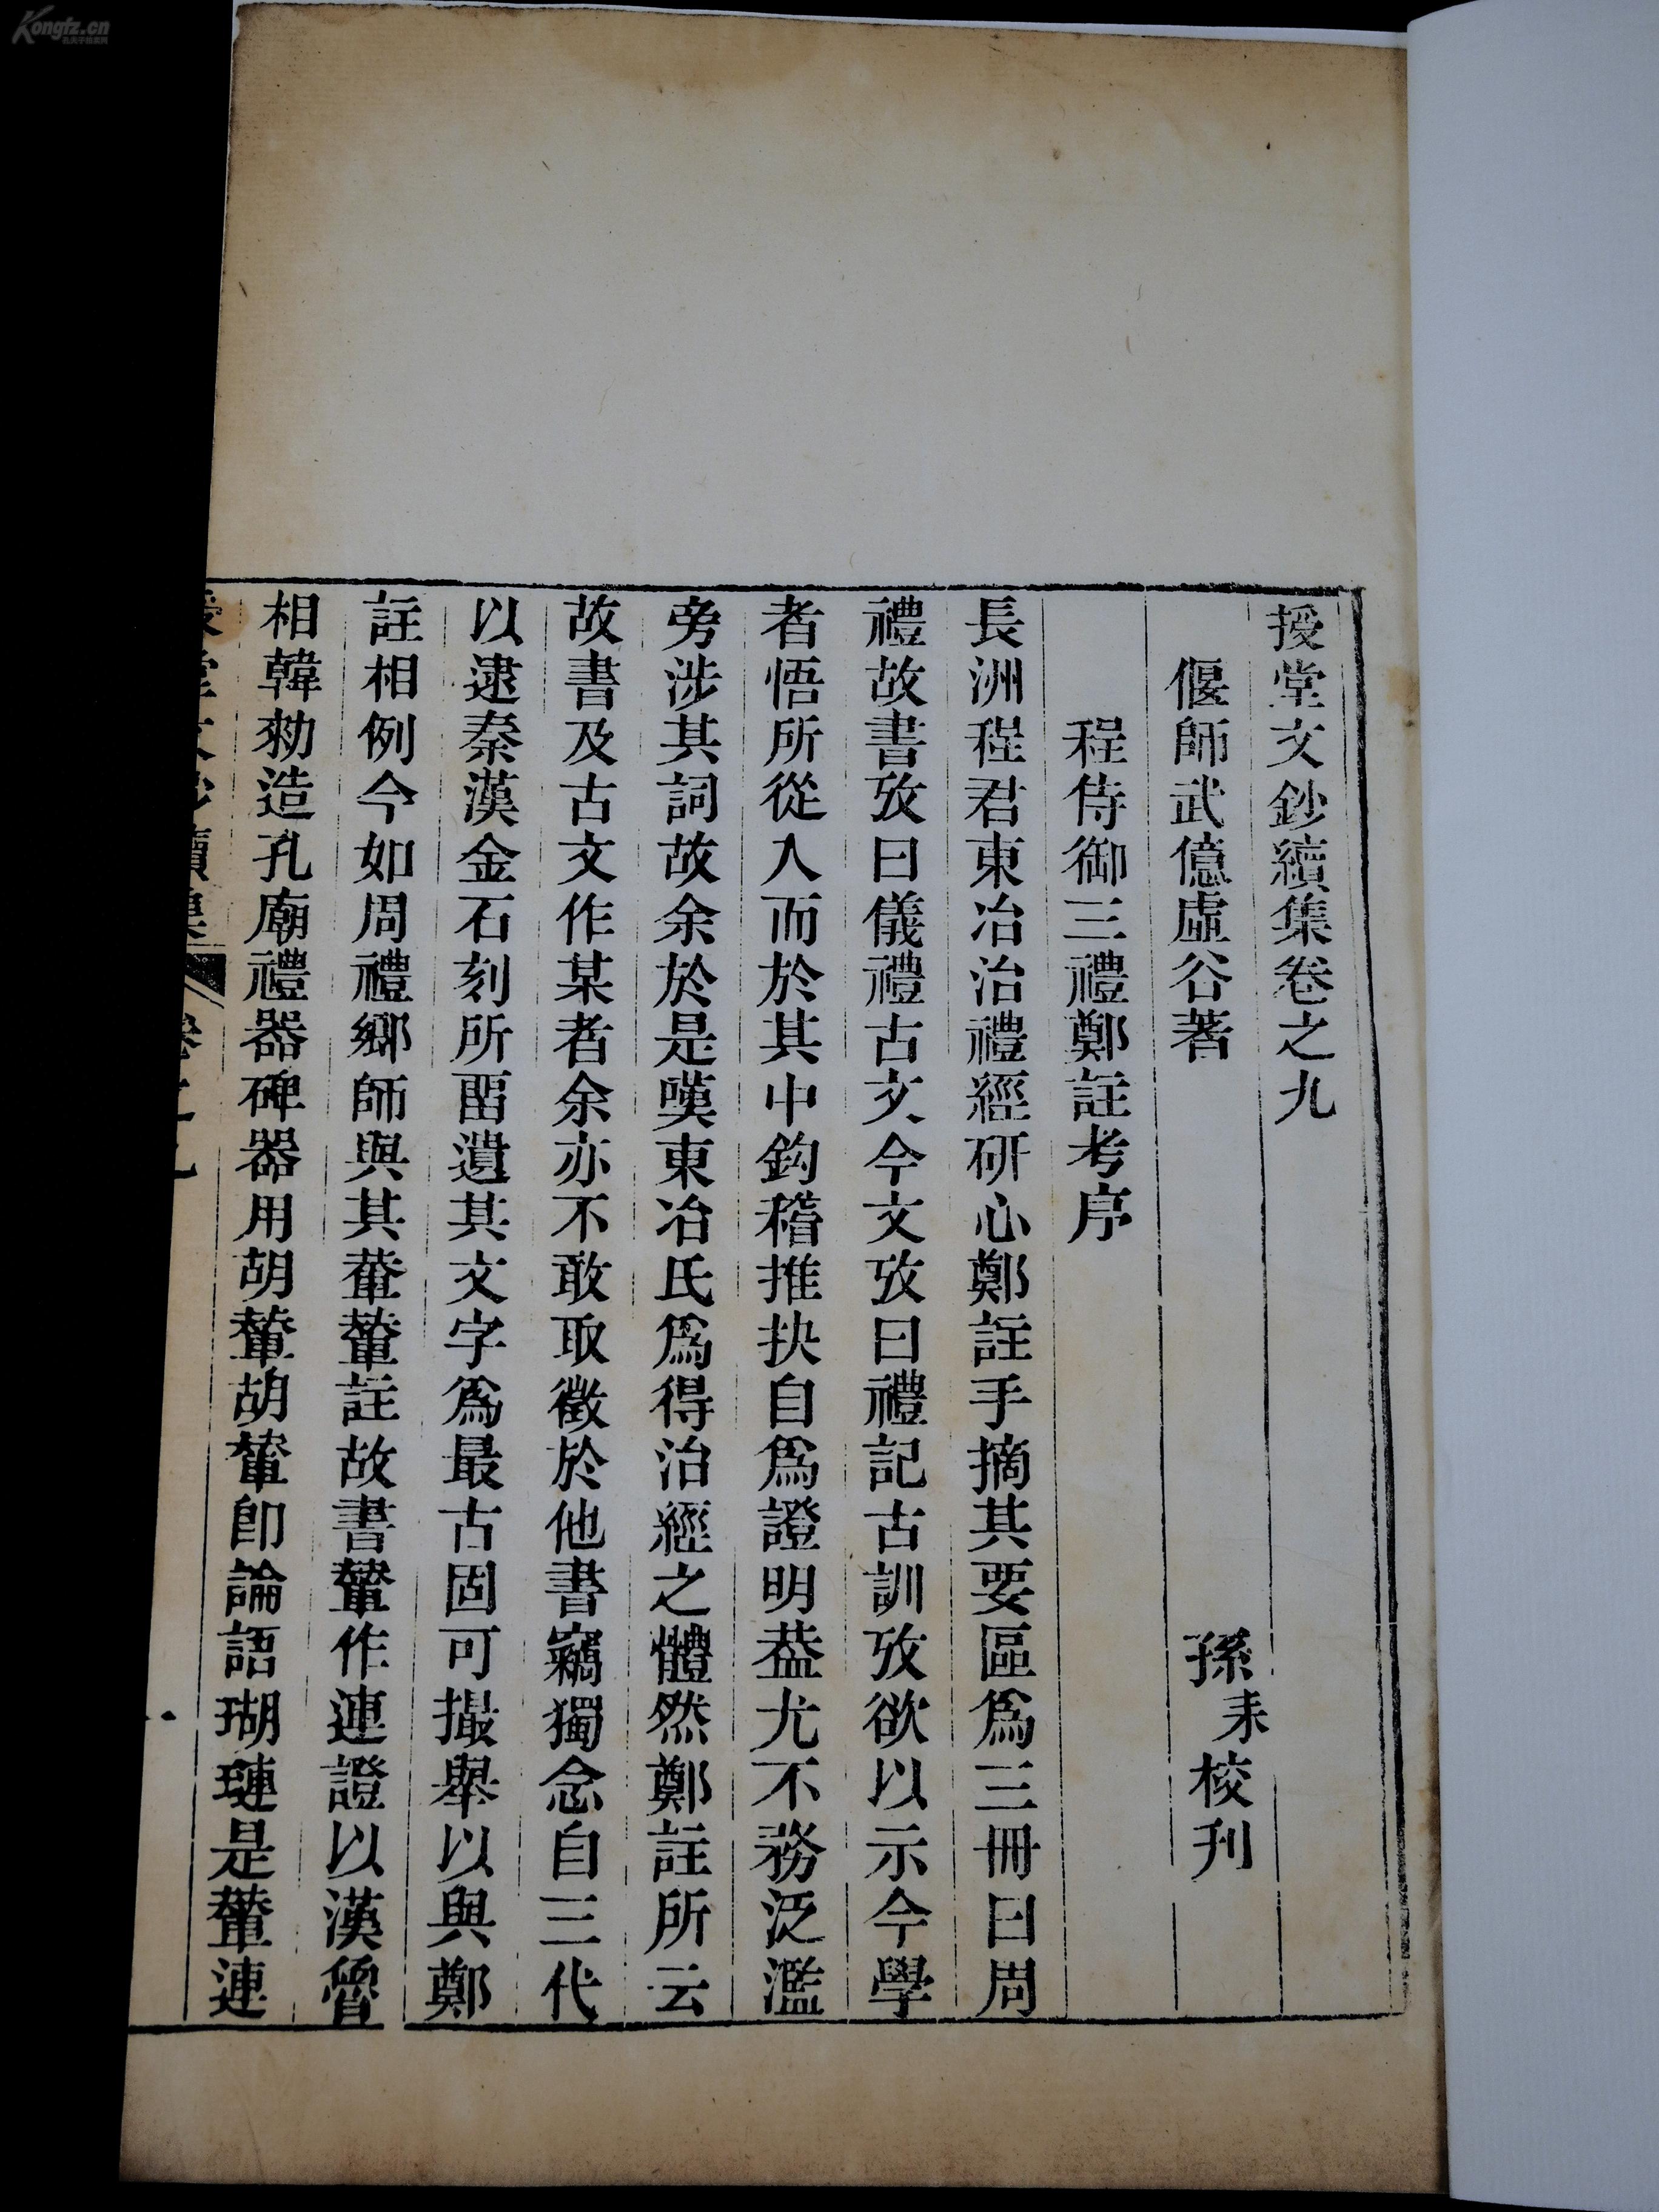 授堂文鈔續集卷之九
偃師武億虛谷著 孫耒校刊
程侍御三禮鄭註考序
長洲程君東冶治禮經研心鄭註手摘其要區爲三冊曰周
禮故書攷曰儀禮古文今文攷曰禮記古訓攷欲以示今學
者悟所從入而於其中鈎稽推抉自爲證明葢尤不務泛濫
旁涉其詞故余於是嘆東冶氏爲得治經之體然鄭註所云
故書及古文作某者余亦不敢取徵於他書竊獨念自三代
以逮秦漢金石刻所畱遺其文字爲最古固可撮舉以與鄭
註相例今如周禮鄉師與其輂輦註故書輦作連證以漢魯
相韓勑造孔廟禮器碑器用胡輦胡輦卽論語瑚璉是輦連
堂文鈔續集 卷之九
一
Kongfz.cn